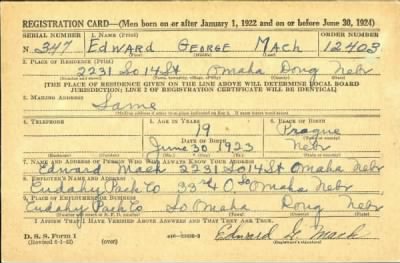 REGISTRATION CARD—(Men born on or after January 1, 1922 and on or before June 30, 1924)
SERIAL NUMBER 1. NAME (Print) ORDER NUMBER
N 347 EDWARD GEORGE MACH 12403
2. PLACE OF RESIDENCE (Print)
2231 So 14 St Omaha Doug Nebr
[THE PLACE OF RESIDENCE GIVEN ON THE LINE ABOVE WILL DETERMINE LOCAL BOARD
JURISDICTION; LINE 2 OF REGISTRATION CERTIFICATE WILL BE IDENTICAL]
3. MAILING ADDRESS
Same
4. TELEPHONE 5. AGE IN YEARS 6. PLACE OF BIRTH
19 Prague
DATE OF BIRTH
June 30 1923 Nebr
7. NAME AND ADDRESS OF PERSON WHO WILL ALWAYS KNOW YOUR ADDRESS
Edward Mach 2231 So 14 St Omaha Nebr
8. EMPLOYER'S NAME AND ADDRESS
Cudahy Pack Co 33rd & O So Omaha Nebr
9. PLACE OF EMPLOYMENT OR BUSINESS
Cudahy Pack Co So Omaha Doug Nebr
I AFFIRM THAT I HAVE VERIFIED ABOVE ANSWERS AND THAT THEY ARE TRUE.
D. S. S. Form 1
Edward G. Mach
(Registrant's signature)